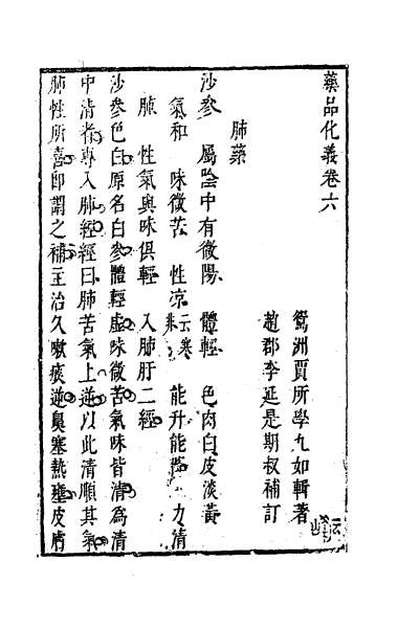 藥品化義卷六
鴛洲賈所學九如輯著
趙郡李延是期叔補訂
肺藥
沙參 屬陰中有微陽 體輕 色肉白皮淡黃
氣和 味微苦 性涼云寒 能升能降 力清
肺 性氣與味俱輕 入肺肝二經
沙參色白原名白參體輕虛味微苦氣味皆清為清
中清者專入肺經經曰肺苦氣上逆以此清順其氣
肺性所喜即謂之補主治久嗽痰逆鼻塞熱壅皮膚